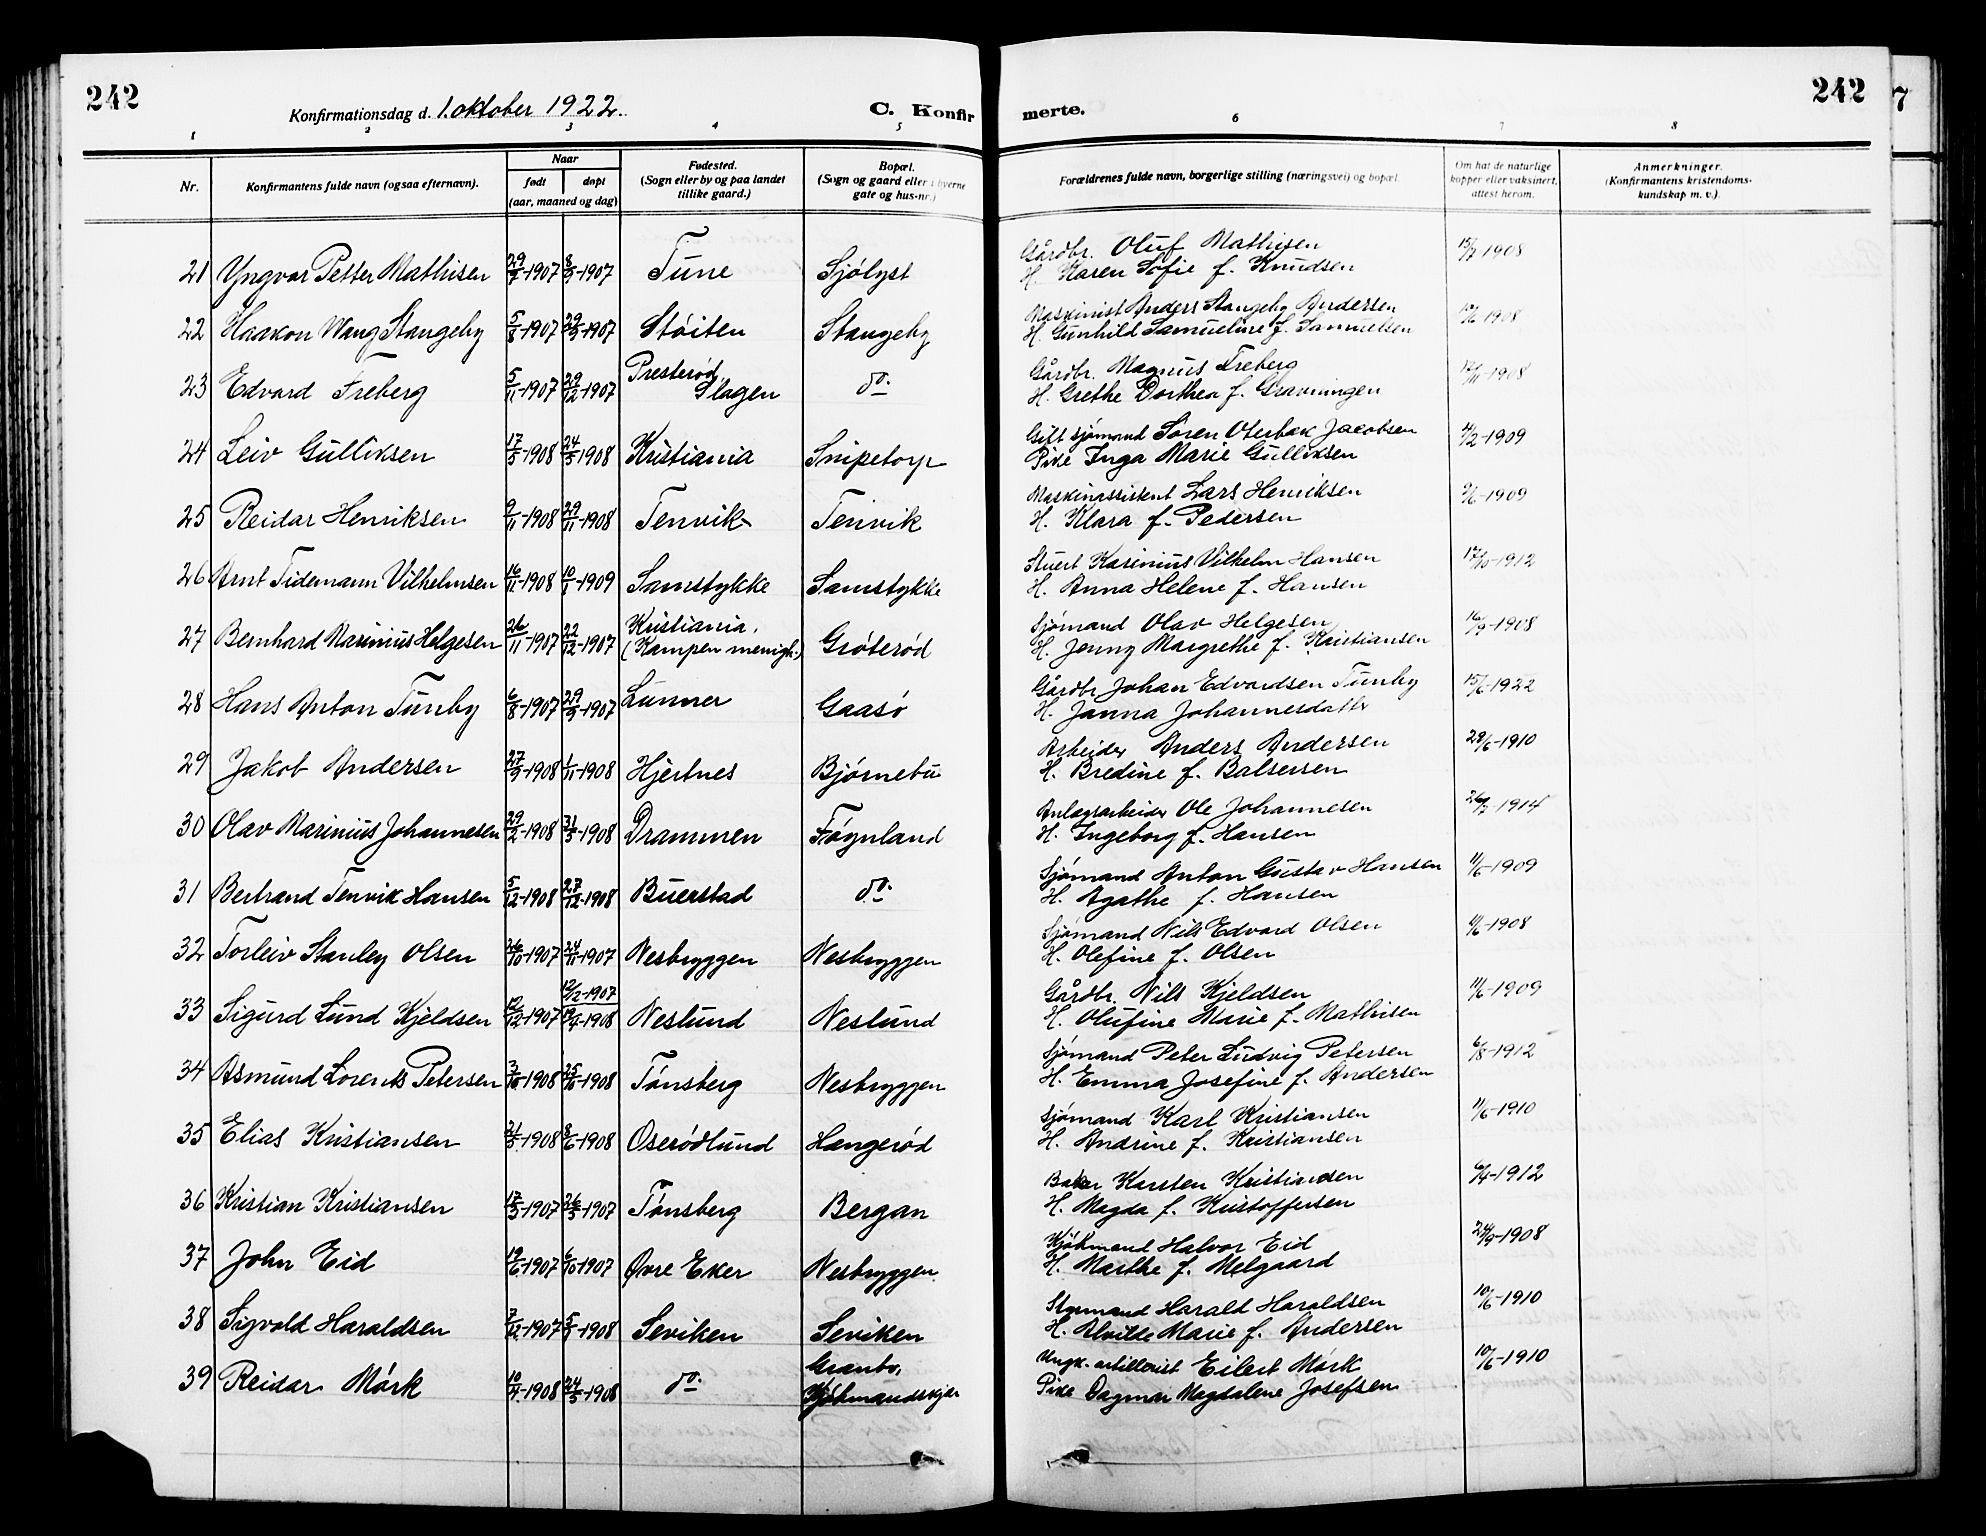 242
Konfirmationsdag d. 1. oktober 1922.
C. Konfir
merte.
242
7
1 2 3 4 5 6 7 8
Nr. Konfirmantens fulde navn (ogsaa efternavn). Naar født døpt (aar, maaned og dag) Fødested. (Sogn eller by og paa landet tillike gaard.) Bopæl. (Sogn og gaard eller i byerne gate og hus-nr.) Forældrenes fulde navn, borgerlige stilling (næringsvei) og bopæl. Om hat de naturlige kopper eller vaksinert, attest herom. Anmerkninger. (Konfirmantens kristendoms-kundskap m. v.).
21 Yngvar Petter Mathisen -1907 -1907 Tune Sjølyst Gårdbr. Oluf Mathisen 1908
H. Karen Sofie f. Knudsen
22 Haakon Wang Stangeby 5/8-1907 29/9-1907 Støiten Stangeby Maskinist Anders Stangeby Andersen 1908
H. Gunhild Samueline f. Samuelsen
23 Edvard Freberg 5/11-1907 29/12-1907 Presterød Slagen do. Gårdbr. Magnus Freberg 12/11-1908
H. Grethe Dorthea f. Gravningen
24 Leiv Gulliksen 17/5-1908 24/5-1908 Kristiania Snipetorp Gift sjømand Søren Oterbæk Jacobsen 4/2-1909
Pike Inga Marie Gulliksen
25 Reidar Henriksen 9/11-1908 29/11-1908 Tenvik Tenvik Maskinassistent Lars Henriksen 9/6-1909
H. Klara f. Pedersen
26 Arnt Tidemann Vilhelmsen 16/11-1908 10/1-1909 Samstykke Samstykke Stuert Karinius Vilhelm Hansen 17/10-1912
H. Anna Helene f. Hansen
27 Bernhard Marinius Helgesen 26/11-1907 22/12-1907 Kristiania. (Kampen menigh.) Grøterød Sjømand Olav Helgesen 16/9-1908
H. Jenny Margrethe f. Kristiansen
28 Hans Anton Tunby 6/8-1907 29/9-1907 Lunner Gaasø Gårdbr Johan Edvardsen Tunby 15/6-1922
H. Janna Johannesdatter
29 Jakob Andersen 27/9-1908 1/11-1908 Hjertnes Bjørnebu Arbeider Anders Andersen 28/6-1910
H. Bredine f. Balsersen
30 Olav Marinius Johannesen 29/2-1908 31/5-1908 Drammen Føynland Anlægsarbeider Ole Johannesen 1914
H. Ingeborg f. Hansen
31 Bertrand Tenvik Hansen 5/12-1908 27/12-1908 Buerstad do. Sjømand Anton Gustav Hansen 11/6-1909
H. Agathe f. Hansen
32 Torleiv Stanley Olsen 26/10-1907 24/11-1907 Nesbryggen Nesbryggen Sjømand Nils Edvard Olsen 1908
H. Olefine f. Olsen
12/12-1907
33 Sigurd Lund Kjeldsen 12/12-1907 19/4-1908 Neslund Neslund Gårdbr. Nils Kjeldsen 11/6-1909
H. Olufine Marie f. Mathisen
34 Asmund Lorents Petersen 3/10-1908 25/10-1908 Tønsberg Nesbryggen Sjømand Peter Ludvig Petersen 6/8-1912
H. Emma Josefine f. Andersen
35 Elias Kristiansen 21/3-1908 8/6-1908 Oserødlund Hængerød Sjømand Karl Kristiansen 11/6-1910
H. Andrine f. Kristiansen
36 Kristian Kristiansen 17/3-1907 26/5-1907 Tønsberg Bergan Baker Karsten Kristiansen 6/4-1912
H. Magda f. Kristoffersen
37 John Eid 19/6-1907 6/10-1907 Øvre Eker Nesbryggen Kjøkmand Halvor Eid 24/9-1908
H. Marthe f. Melgaard
38 Sigvald Haraldsen 7/12-1907 5/1-1908 Seviken Seviken Styrmand Harald Haraldsen 10/6-1910
H. Alvilde Marie f. Andersen
39 Reidar Mørk 10/4-1908 24/5-1908 do. Grænbo, Kjøkmandskjær Ungk. artillerist Eilert Mørk 10/6-1910
Pike Dagmar Magdalene Josefsen